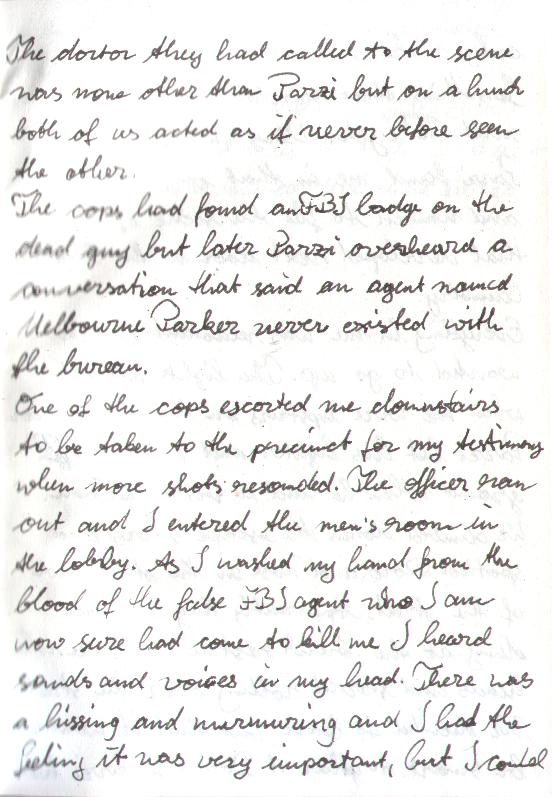 The doctor they had called to the scene
was none other than Parzi but on a hunch
both of us acted as if never before seen
the other.
The cops had found an FBI badge on the
dead guy but later Parzi overheard a
conversation that said an agent named
Melbourne Parker never existed with
the bureau.
One of the cops escorted me downstairs
to be taken to the precinct for my testimony
when more shots resounded. The officer ran
out and I entered the men's room in
the lobby. As I washed my hand from the
blood of the false FBI agent who I am
now sure had come to kill me I heard
sounds and voices in my head. There was
a hissing and murmuring and I had the
feeling it was very important, but I could